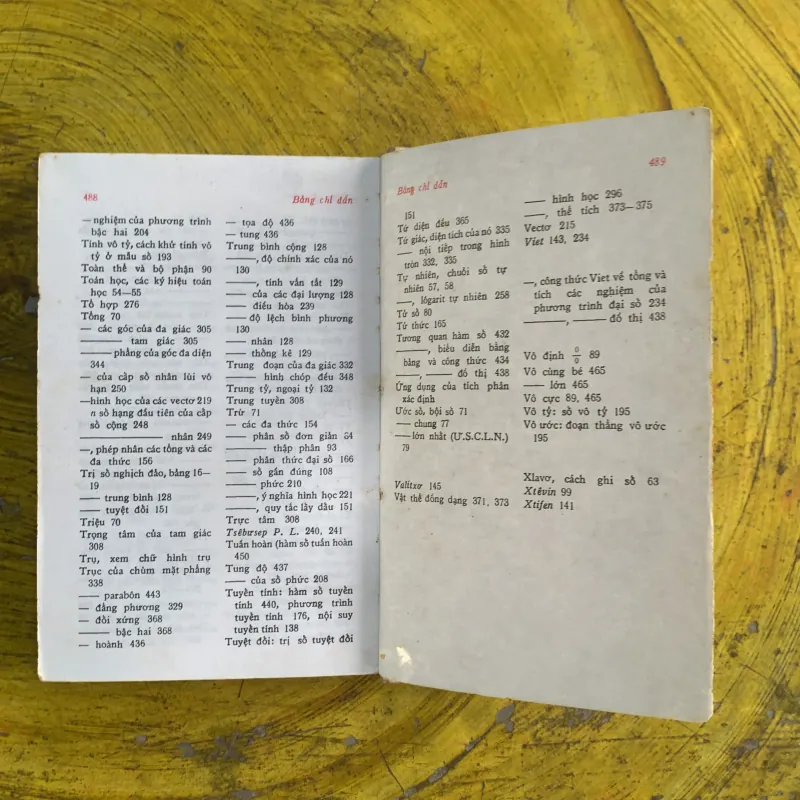 488
Bảng chỉ dẫn
— nghiệm của phương trình
bậc hai 204
Tính vô tỷ, cách khử tính vô
tỷ ở mẫu số 193
Toàn thể và bộ phận 90
Toán học, các ký hiệu toán
học 54—55
Tổ hợp 276
Tổng 70
— các góc của đa giác 305
——— tam giác 305
——— phẳng của góc đa diện
344
— của cấp số nhân lùi vô
hạn 250
—hình học của các vectơ 219
n số hạng đầu tiên của cấp
số cộng 248
——————— nhân 249
—, phép nhân các tổng và các
đa thức 156
Trị số nghịch đảo, bảng 16—
19
—— trung bình 128
—— tuyệt đối 151
Triệu 70
Trọng tâm của tam giác
308
Trụ, xem chữ hình trụ
Trục của chùm mặt phẳng
338
—— parabôn 443
— đẳng phương 329
— đối xứng 368
——— bậc hai 368
— hoành 436
— tọa độ 436
— tung 436
Trung bình cộng 128
———, độ chính xác của nó
130
———, tính vắn tắt 129
—— của các đại lượng 128
—— điều hòa 239
—— độ lệch bình phương
130
—— nhân 128
—— thống kê 129
Trung đoạn của đa giác 332
——— hình chóp đều 348
Trung tỷ, ngoại tỷ 132
Trung tuyến 308
Trừ 71
— các đa thức 154
—— phân số đơn giản 84
——— thập phân 93
—— phân thức đại số 166
—— số gần đúng 108
——— phức 210
———, ý nghĩa hình học 221
———, quy tắc lấy dấu 151
Trực tâm 308
Tsêbưsep P. L. 240, 241
Tuần hoàn (hàm số tuần hoàn
450
Tung độ 437
—— của số phức 208
Tuyến tính: hàm số tuyến
tính 440, phương trình
tuyến tính 176, nội suy
tuyến tính 138
Tuyệt đối: trị số tuyệt đối
Bảng chỉ dẫn
489
151
Tứ diện đều 365
Tứ giác, diện tích của nó 335
—— nội tiếp trong hình
tròn 332, 335
Tự nhiên, chuỗi số tự
nhiên 57, 58
——, lôgarit tự nhiên 258
Tử số 80
Tử thức 165
Tương quan hàm số 432
———, biểu diễn bằng
bảng và công thức 434
———, —— đồ thị 438
Ứng dụng của tích phân
xác định
Ước số, bội số 71
— chung 77
—— lớn nhất (U.S.C.L.N.)
79
Valitxơ 145
Vật thể đồng dạng 371, 373
—— hình học 296
——, thể tích 373—375
Vectơ 215
Viet 143, 234
—, công thức Viet về tổng và
tích các nghiệm của
phương trình đại số 234
———, ——— đồ thị 438
Vô định 0/0 89
Vô cùng bé 465
—— lớn 465
Vô cực 89, 465
Vô tỷ: số vô tỷ 195
Vô ước: đoạn thẳng vô ước
195
Xlavơ, cách ghi số 63
Xtêvin 99
Xtifen 141